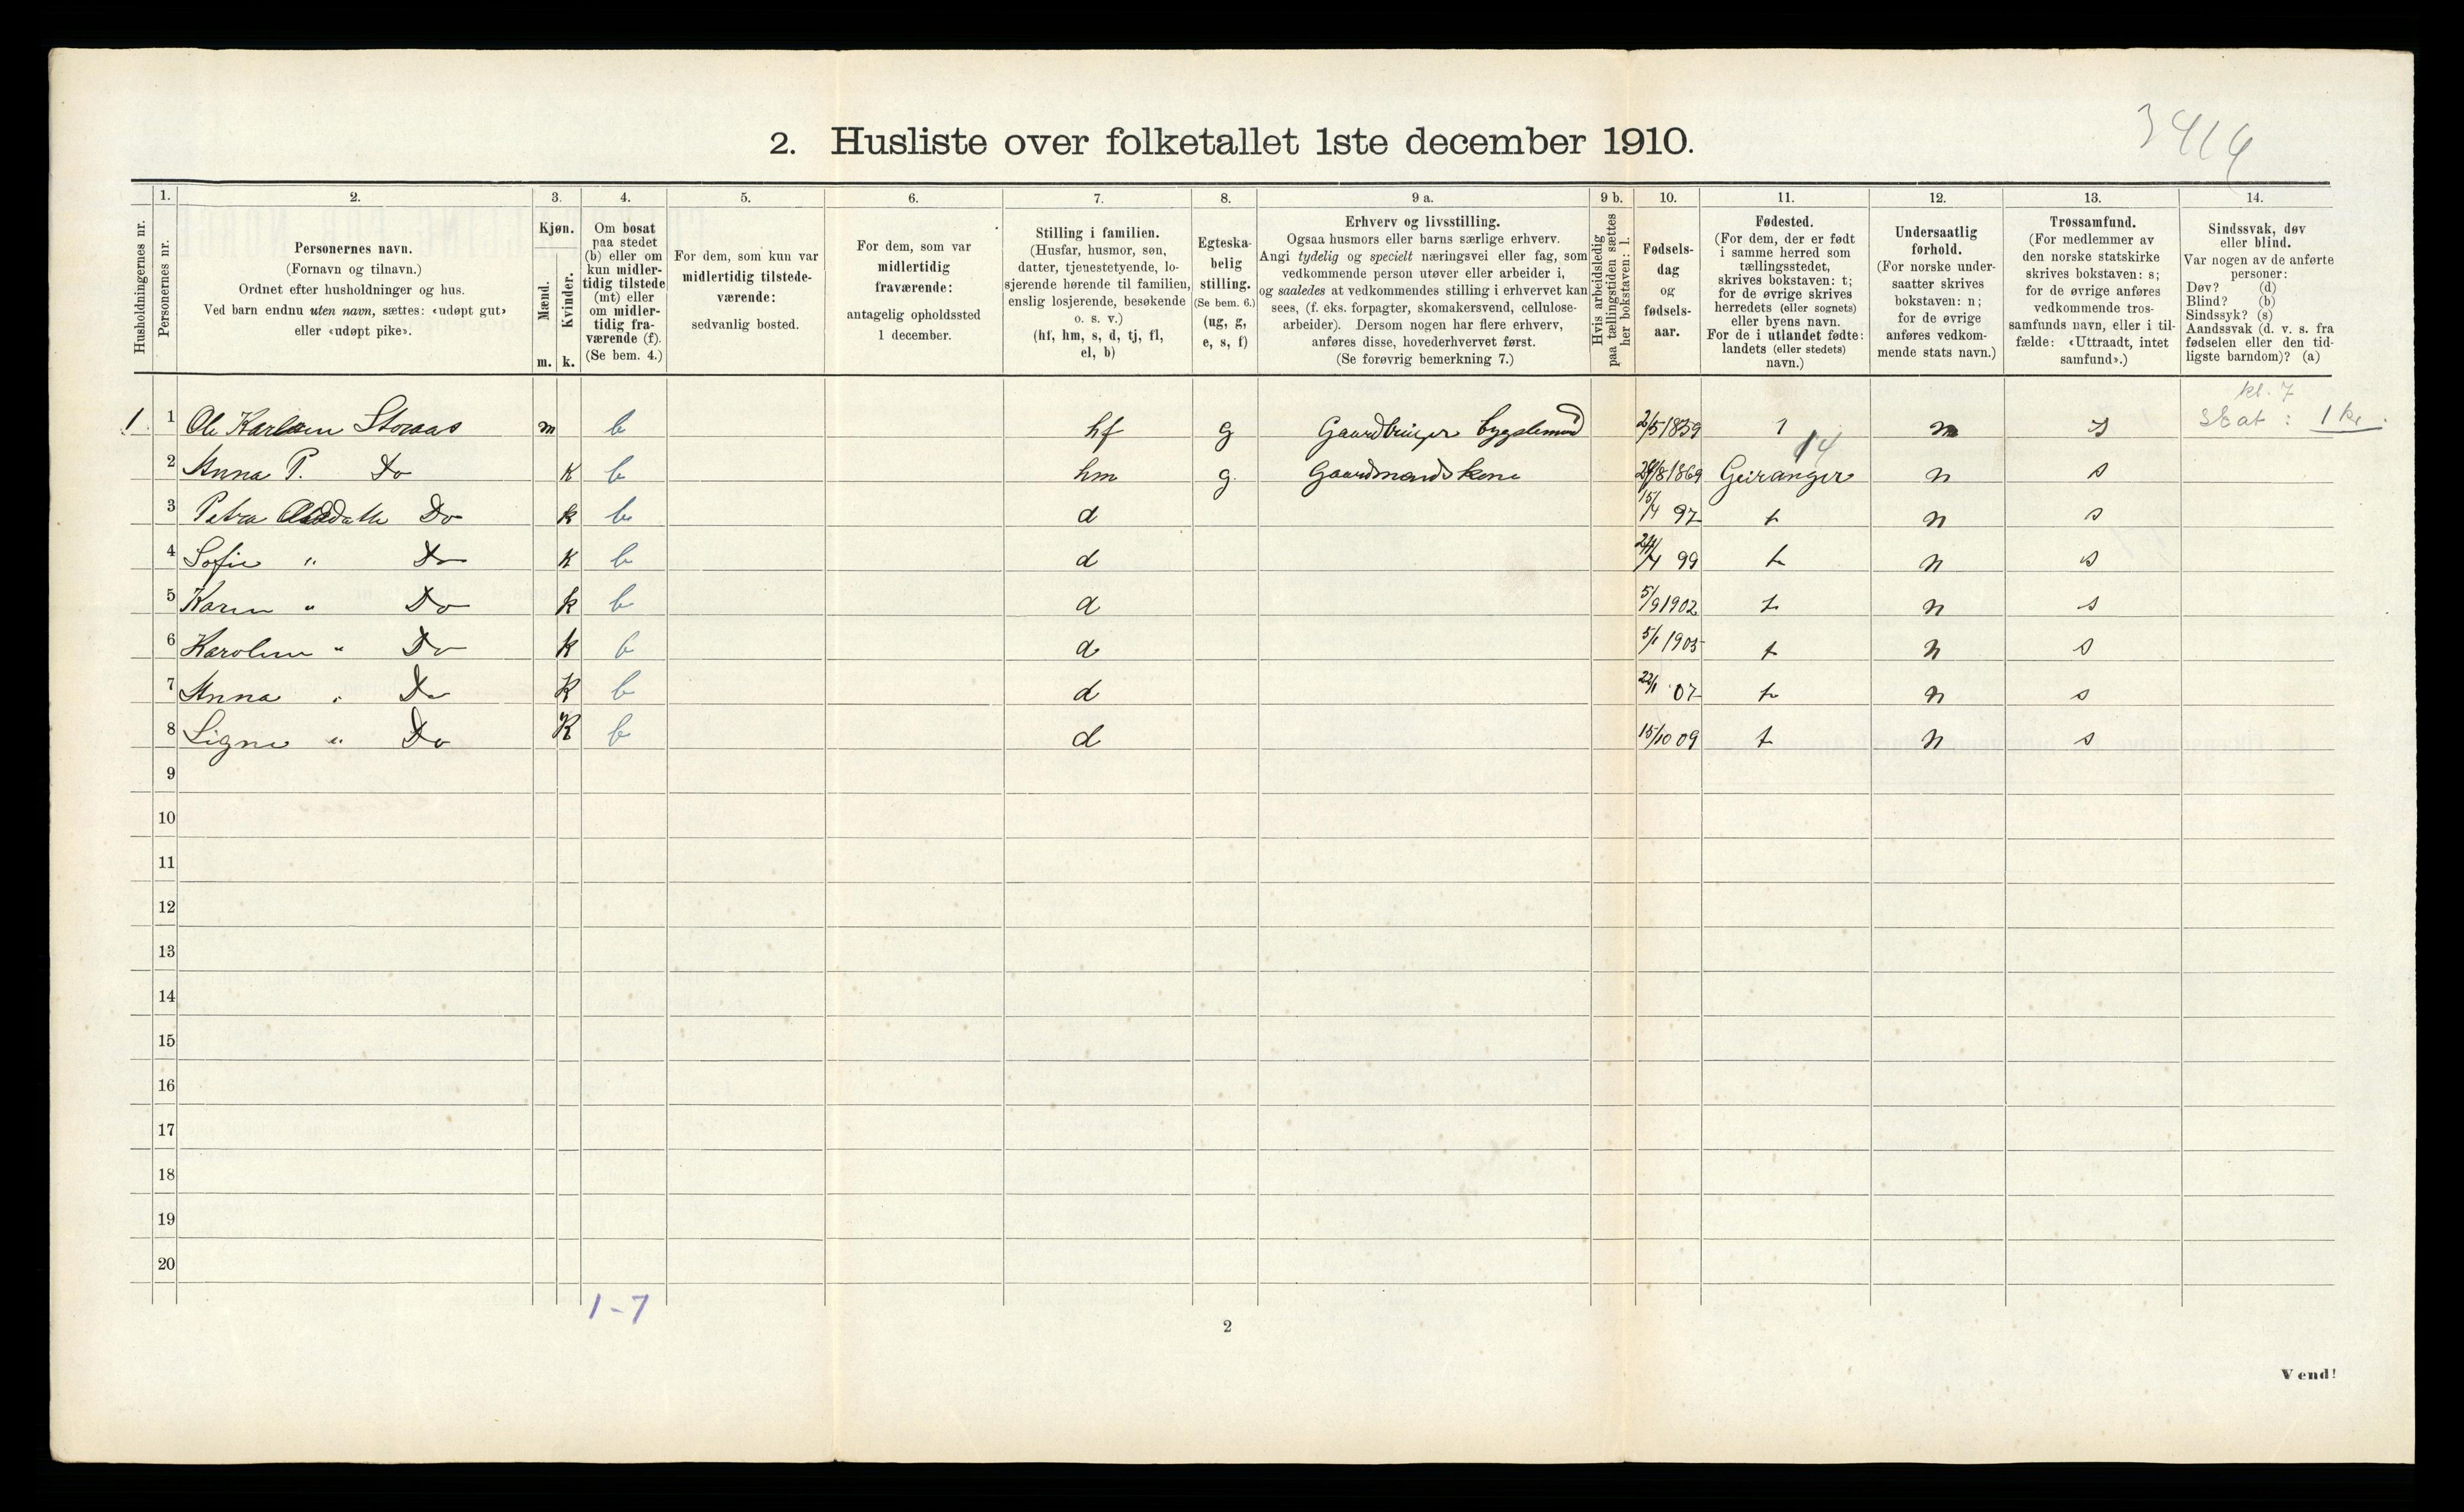 3414
2. Husliste over folketallet 1ste december 1910.
Husholdningernes nr.
1.
Personernes nr.
2.
Personernes navn.
(Fornavn og tilnavn.)
Ordnet efter husholdninger og hus.
Ved barn endnu uten navn, sættes: «udøpt gut»
eller «udøpt pike».
3.
Kjøn.
Mænd.
Kvinder.
m. k.
4.
Om bosat
paa stedet
(b) eller om
kun midler-
tidig tilstede
(mt) eller
om midler-
tidig fra-
værende (f).
(Se bem. 4.)
5.
For dem, som kun var
midlertidig tilstede-
værende:
sedvanlig bosted.
6.
For dem, som var
midlertidig
fraværende:
antagelig opholdssted
1 december.
7.
Stilling i familien.
(Husfar, husmor, søn,
datter, tjenestetyende, lo-
sjerende hørende til familien,
enslig losjerende, besøkende
o. s. v.)
(hf, hm, s, d, tj, fl,
el, b)
8.
Egteska-
belig
stilling.
(Se bem. 6.)
(ug, g,
e, s, f)
9 a.
Erhverv og livsstilling.
Ogsaa husmors eller barns særlige erhverv.
Angi tydelig og specielt næringsvei eller fag, som
vedkommende person utøver eller arbeider i,
og saaledes at vedkommendes stilling i erhvervet kan
sees, (f. eks. forpagter, skomakersvend, cellulose-
arbeider). Dersom nogen har flere erhverv,
anføres disse, hovederhvervet først.
(Se forøvrig bemerkning 7.)
9 b.
Hvis arbeidsledig
paa tællingstiden sættes
her bokstaven: l.
10.
Fødsels-
dag
og
fødsels-
aar.
11.
Fødested.
(For dem, der er født
i samme herred som
tællingsstedet,
skrives bokstaven: t;
for de øvrige skrives
herredets (eller sognets)
eller byens navn.
For de i utlandet fødte:
landets (eller stedets)
navn.)
12.
Undersaatlig
forhold.
(For norske under-
saatter skrives
bokstaven: n;
for de øvrige
anføres vedkom-
mende stats navn.)
13.
Trossamfund.
(For medlemmer av
den norske statskirke
skrives bokstaven: s;
for de øvrige anføres
vedkommende tros-
samfunds navn, eller i til-
fælde: «Uttraadt, intet
samfund».)
14.
Sindssvak, døv
eller blind.
Var nogen av de anførte
personer:
Døv? (d)
Blind? (b)
Sindssyk? (s)
Aandssvak (d. v. s. fra
fødselen eller den tid-
ligste barndom)? (a)
kl. 7
1. 1 Ole Karlsen Storaas m b hf g Gaardbruger bygslemand 2/5 1839 t n s Skat: 1 kr.
14
2 Anna P. Do k b hm g. Gaardmandskone /8 1869 Geiranger n s
3 Petra Do k b d 15/4 97 t n s
4 Sofie " Do k b d 99 t n s
5 Karen " Do k b d 5/9 1902 t n s
6 Karoline " Do k b d 5/1 1905 t n s
7 Anna " Do K b d 22/1 07 t n s
8 Signe " Do K b d 15/10 09 t n s
9
10
11
12
13
14
15
16
17
18
19
20
1-7
2
Vend!